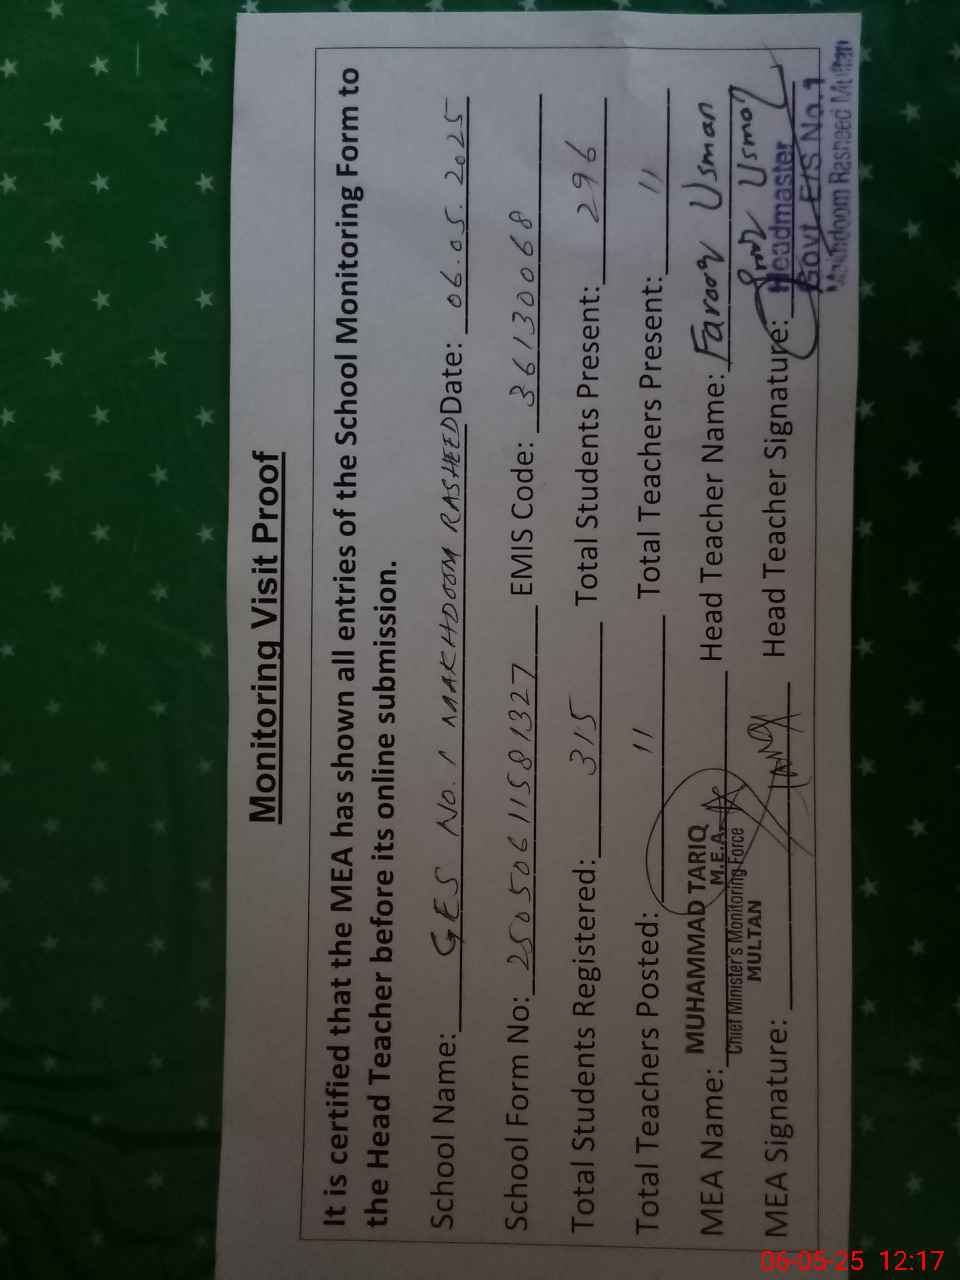 Monitoring Visit Proof
It is certified that the MEA has shown all entries of the School Monitoring Form to
the Head Teacher before its online submission.
School Name: GES No. 1 MAKHDOOM RASHEED Date: 06.05.2025
School Form No: 25050611581327 EMIS Code: 36130068
Total Students Registered: 315 Total Students Present: 296
Total Teachers Posted: 11 Total Teachers Present: 11
MEA Name: MUHAMMAD TARIQ Head Teacher Name: Farooq Usman
M.E.A
Chief Minister's Monitoring Force
MULTAN
MEA Signature: Head Teacher Signature:
Headmaster
Govt. E/S No.1
Makhdoom Rasheed Multan
06-05-25 12:17